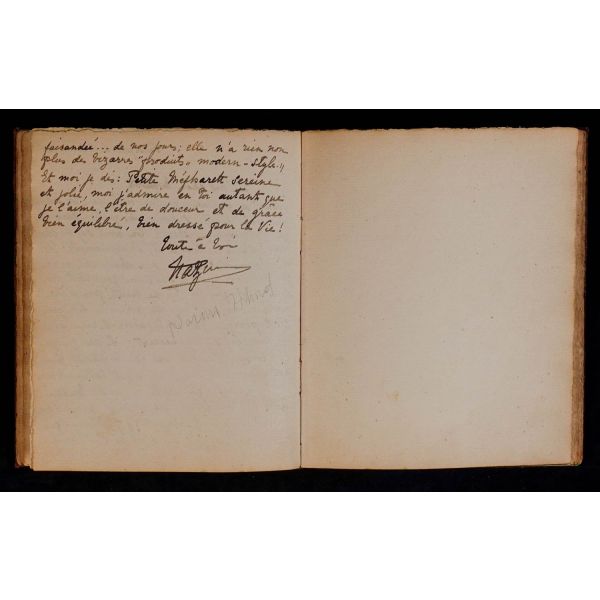 faisandée... de nos jours; elle n'a rien non
plus des bizarres "produits" modern-style."
Et moi je dis: Petite Méfharett sereine
et jolie, moi j'admire en toi autant que
je l'aime, l'être de douceur et de grâce
bien équilibré, bien dressé pour la Vie!
Toute à toi